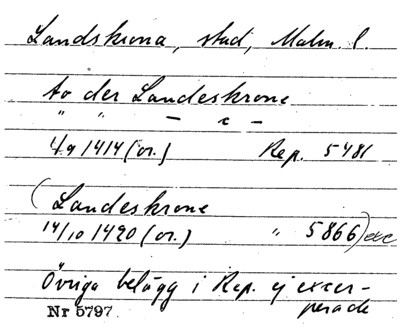 Landskrona, stad, Malm. l.
to der Landeskrone
" " – c –
4/9 1414 (or.) Rep. 5481
(Landeskrone
14/10 1420 (or.) " 5866) exc
Övriga belägg i Rep. ej excer-
perade
Nr 5797.